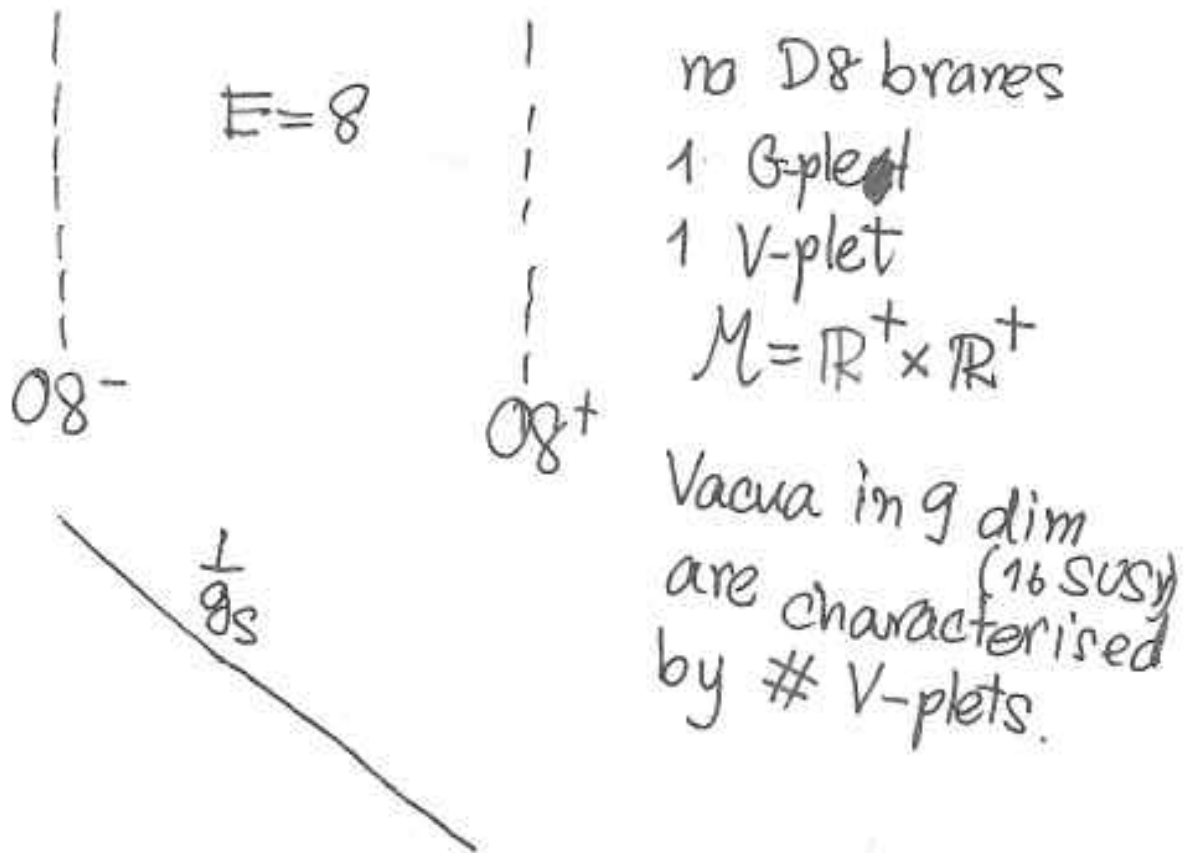 E=8
O8⁻
O8⁺
1/gs
no D8 branes
1 G-plet
1 V-plet
M = ℝ⁺ × ℝ⁺
Vacua in 9 dim
(16 SUSY)
are characterised
by # V-plets.